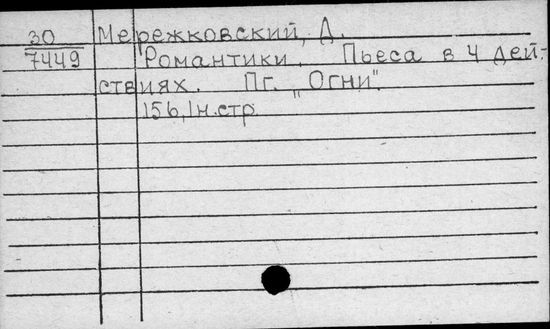 30 Мережковский, Д.
7449 Романтики. Пьеса в 4 дей-
ствиях. Пг. „Огни".
156,1н.стр.